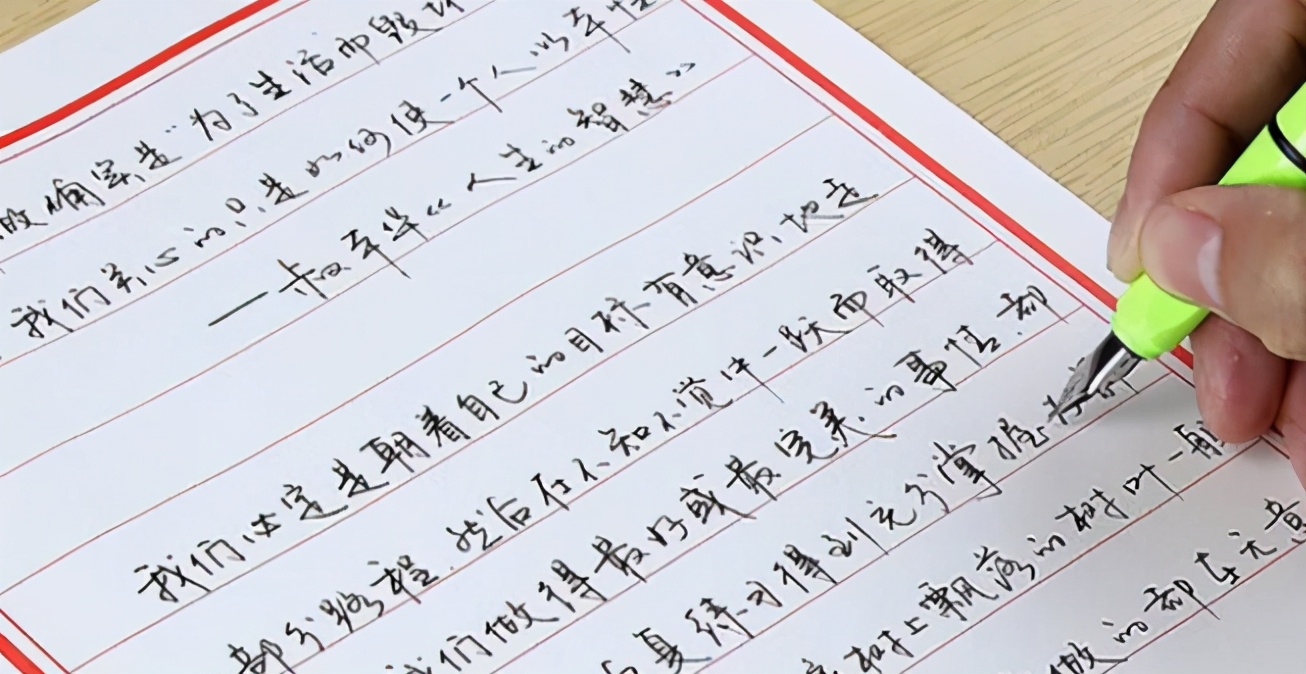 做确实是“为了生活而毁坏
我们关心的只是如何使一个人以平
——叔平华《人生的智慧》
我们必定是朝着自己的目标有意识地走
部分路程，然后在不知不觉中一跃而取得
我们做得最好或最完美的事情，却
复练习得到充分掌握
树上飘落的树叶一般
做的却在无意